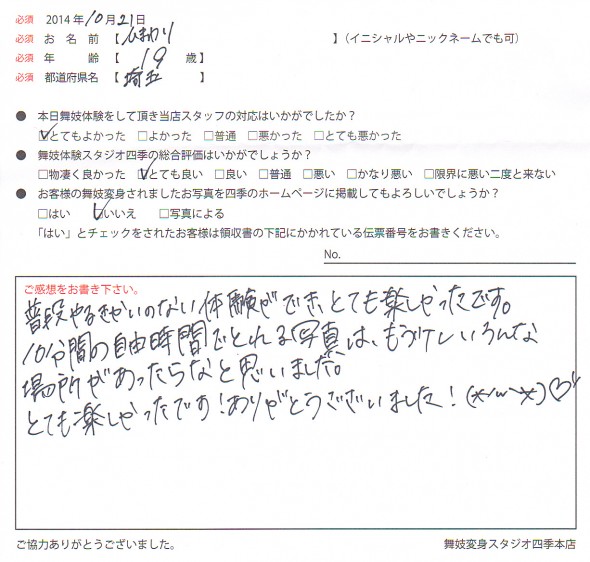 必須 2014年10月21日
必須 お名前【ひまわり 】(イニシャルやニックネームでも可)
必須 年齢【 19 歳】
必須 都道府県名【 埼玉 】
● 本日舞妓体験をして頂き当店スタッフの対応はいかがでしたか?
☑とてもよかった □よかった □普通 □悪かった □とても悪かった
● 舞妓体験スタジオ四季の総合評価はいかがでしょうか?
□物凄く良かった ☑とても良い □良い □普通 □悪い □かなり悪い □限界に悪い二度と来ない
● お客様の舞妓変身されましたお写真を四季のホームページに掲載してもよろしいでしょうか?
□はい ☑いいえ □写真による
「はい」とチェックをされたお客様は領収書の下記にかかれている伝票番号をお書きください。
No.
ご感想をお書き下さい。
普段やるきかいのない体験ができ、とても楽しかったです。
10分間の自由時間でとれる写真は、もう少しいろんな
場所があったらなと思いました。
とても楽しかったです!ありがとうございました!(*^^*)♡
ご協力ありがとうございました。
舞妓変身スタジオ四季本店